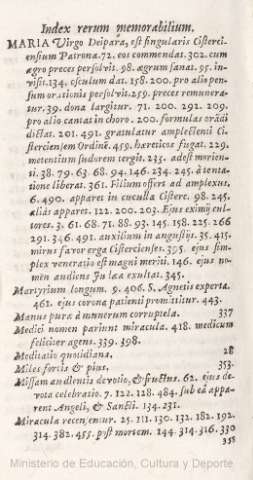 Index rerum memorabilium.
MARIA Virgo Deipara, est singularis Cisterci-
ensium Patrona. 72. eos commendat. 302. cum
ægro preces persolvit. 98. ægrum sanat. 95. in-
visit. 134. osculum dat. 158. 200. pro alio pen-
sum orationis persolvit. 259. preces remunera-
tur. 39. dona largitur. 71. 200. 291. 209.
pro alio cantat in choro. 200. formulas orādi
dictat. 201. 491. gratulatur amplectenti Ci-
sterciensem Ordinē. 459. hæreticos fugat. 229.
morientium sudorem tergit. 235. adest morien-
ti. 38. 79. 63. 68. 94. 146. 234. 245. à tenta-
tione liberat. 361. Filium offert ad amplexus.
6. 490. apparet in cuculla Cisterc. 98. 245.
aliàs apparet. 122. 200. 203. Ejus eximij cul-
tores. 3. 61. 68. 71. 88. 93. 145. 158. 225. 266
291. 346. 491. auxilium in angustijs. 35. 415.
mirus favor erga Cistercienses. 395. ejus sim-
plex veneratio est magni meriti. 146. ejus no-
men audiens Ju laa exultat. 345.
Martyrium longum. 9. 406. S. Agnetis experta.
461. ejus corona patienti promittitur. 443.
Manus pura à munerum corruptela. 337
Medici nomen pariunt miracula. 418. medicum
feliciter agens. 339. 398.
Meditatio quotidiana. 28
Miles fortis & pius. 353.
Missam audientis devotio, & fructus. 62. ejus de-
vota celebratio. 7. 122. 128. 484. sub eâ appa-
rent Angeli, & Sancti. 134. 231.
Miracula recensentur. 25. 111. 130. 132. 182. 192.
314. 382. 455. post mortem. 244. 314. 316. 330
358
Ministerio de Educación, Cultura y Deporte